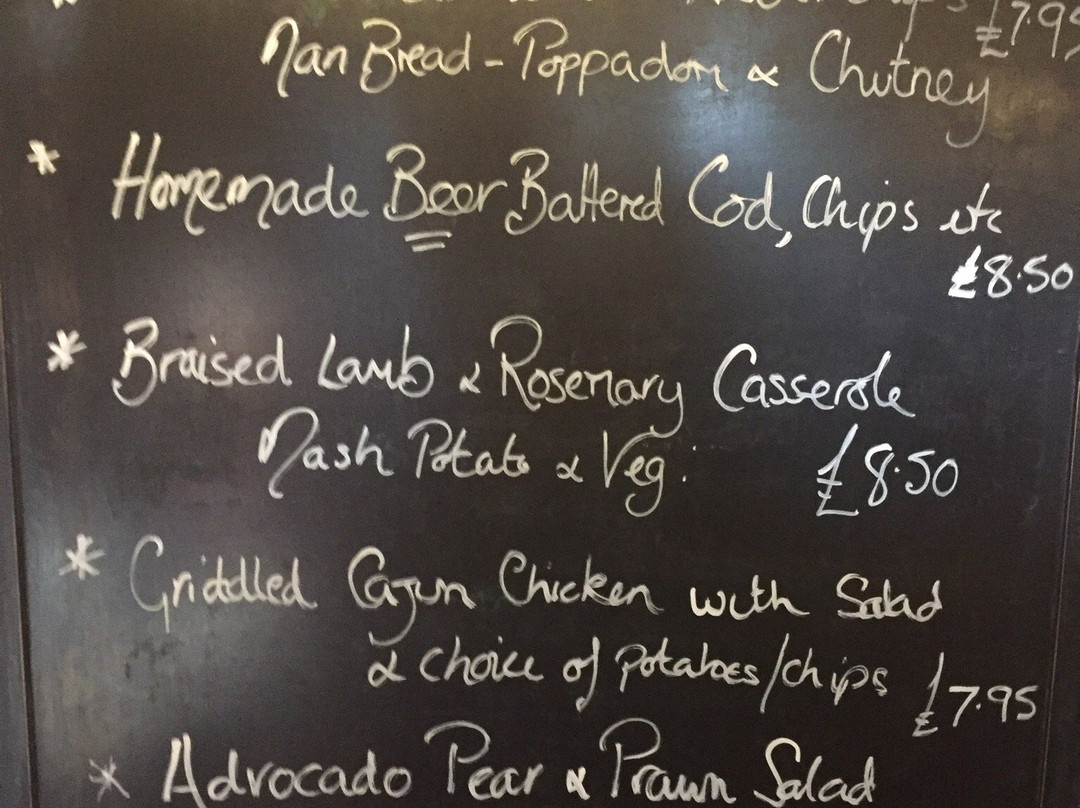 £7.95
Nan Bread - Poppadom & Chutney
* Homemade Beer Battered Cod, Chips etc
£8.50
* Braised Lamb & Rosemary Casserole
Mash Potato & Veg. £8.50
* Griddled Cajun Chicken with Salad
& choice of potatoes/chips £7.95
* Advocado Pear & Prawn Salad